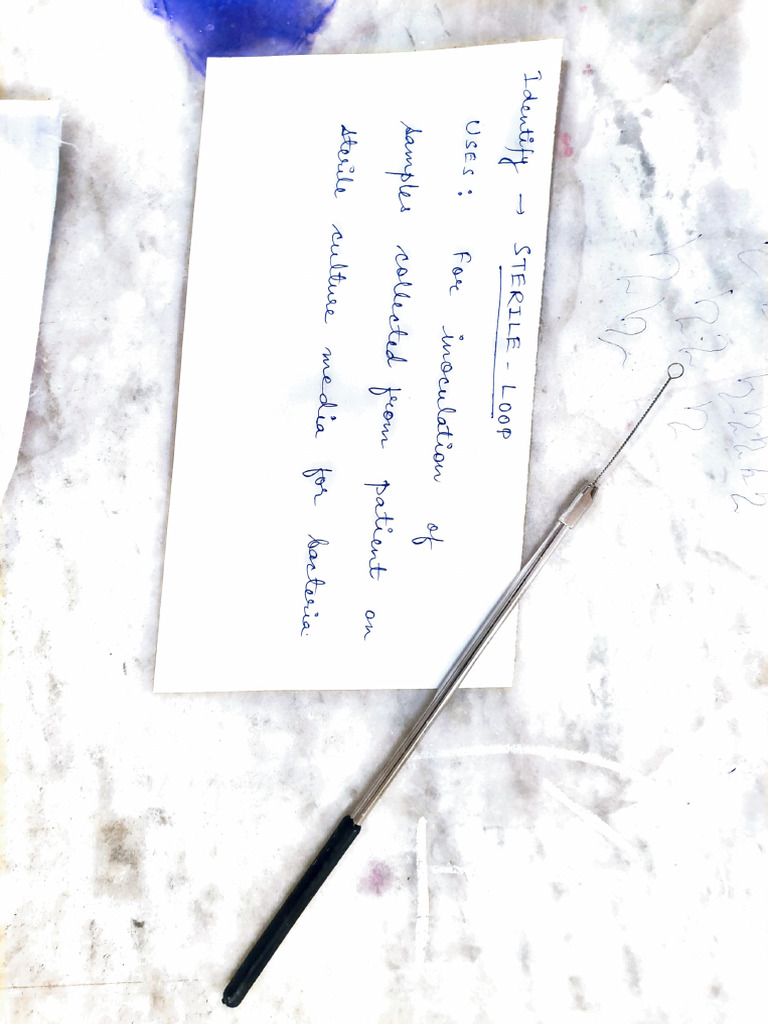 Identify → STERILE-LOOP
USES: For inoculation of
samples collected from patient on
sterile culture media for bacteria.